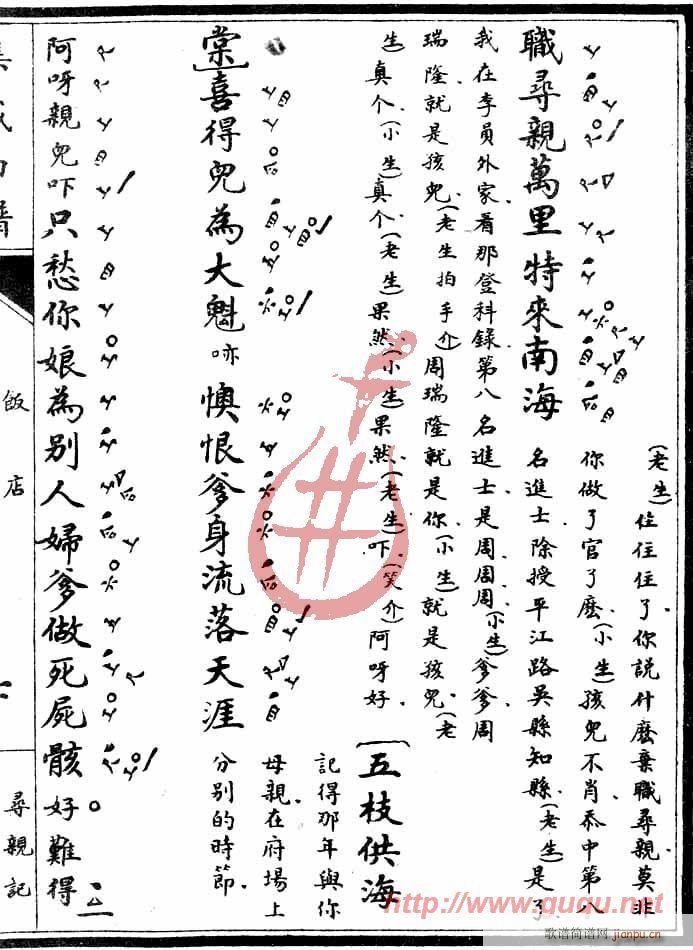 職尋親萬里特來南海(老生)住住住了你說什麼棄職尋親莫非
你做了官了麼(小生)孩兒不肖忝中第八
名進士除授平江路吳縣知縣(老生)是了
我在李員外家看那登科錄第八名進士是周周周(小生)爹爹周
瑞隆就是孩兒(老生拍手介)周瑞隆就是你(小生)就是孩兒(老
生)真个(小生)真个(老生)果然(小生)果然(老生)吓(笑介)阿呀好
〔五枝供海
棠〕喜得兒為大魁
記得那年與你
母親在府場上
分別的時節
亦懊恨爹身流落天涯
阿呀親兒吓只愁你娘為別人婦爹做死屍骸好難得
飯店
尋親記
http://www.guqu.net
歌谱简谱网
jianpu.cn